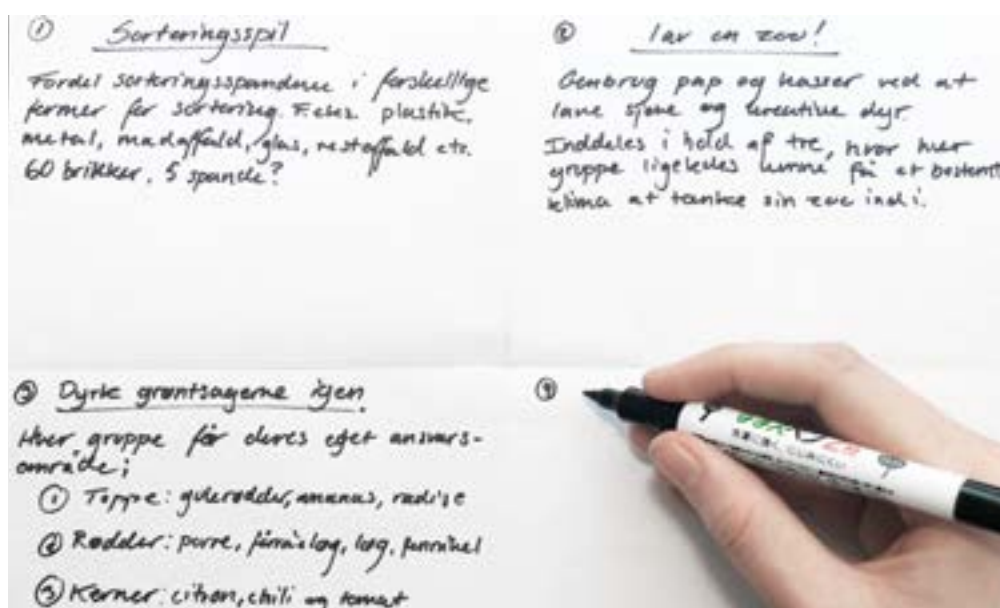 ① Sorteringsspil
Fordel sorteringsspandene i forskellige
former for sortering. F.eks. plastik,
metal, madaffald, glas, restaffald etc.
60 brikker, 5 spande?
② lav en zoo!
Genbrug pap og kasser ved at
lave sjove og kreative dyr.
Inddeles i hold af tre, hvor hver
gruppe ligeledes kunne få et bestemt
klima at tænke sin zoo ind i.
③ Dyrk grøntsagerne igen.
Hver gruppe får deres eget ansvars-
område;
① Toppe: gulerødder, ananas, radise
② Rødder: porre, forårsløg, løg, fennikel
③ Kerner: citron, chili og tomat
④